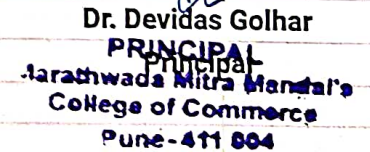 Dr. Devidas Golhar
PRINCIPAL
Principal
Marathwada Mitra Mandal's
College of Commerce
Pune-411 004